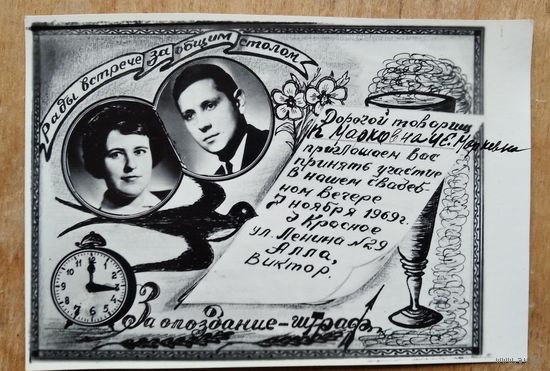 Рады встрече за общим столом
Дорогой товарищ
приглашаем Вас
принять участие
в нашем свадеб-
ном вечере
7 ноября 1969г.
Красное
ул Ленина №29
Алла,
Виктор.
За опоздание-штраф